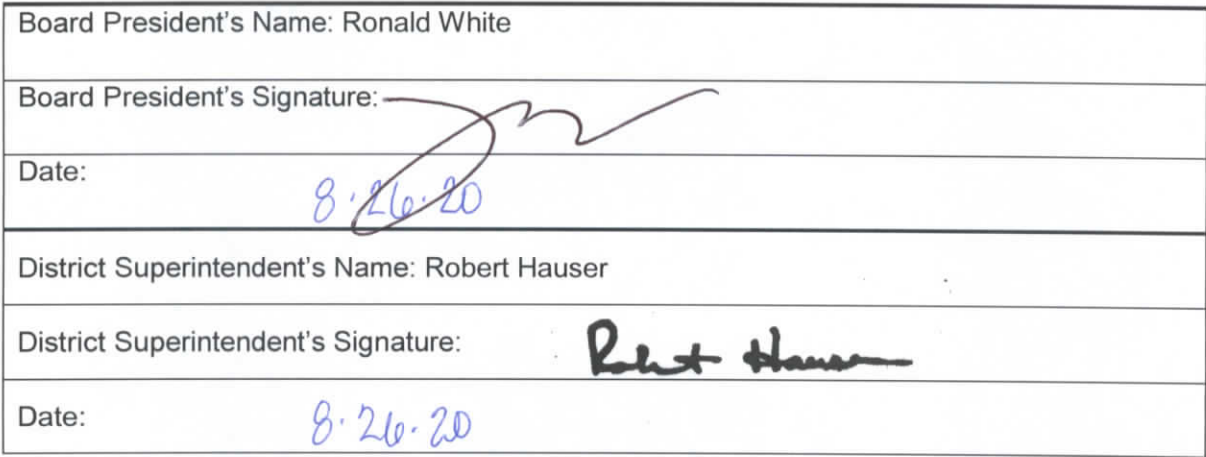 Board President's Name: Ronald White
Board President's Signature:
Date: 8·26·20
District Superintendent's Name: Robert Hauser
District Superintendent's Signature: Robert Hauser
Date: 8·26·20